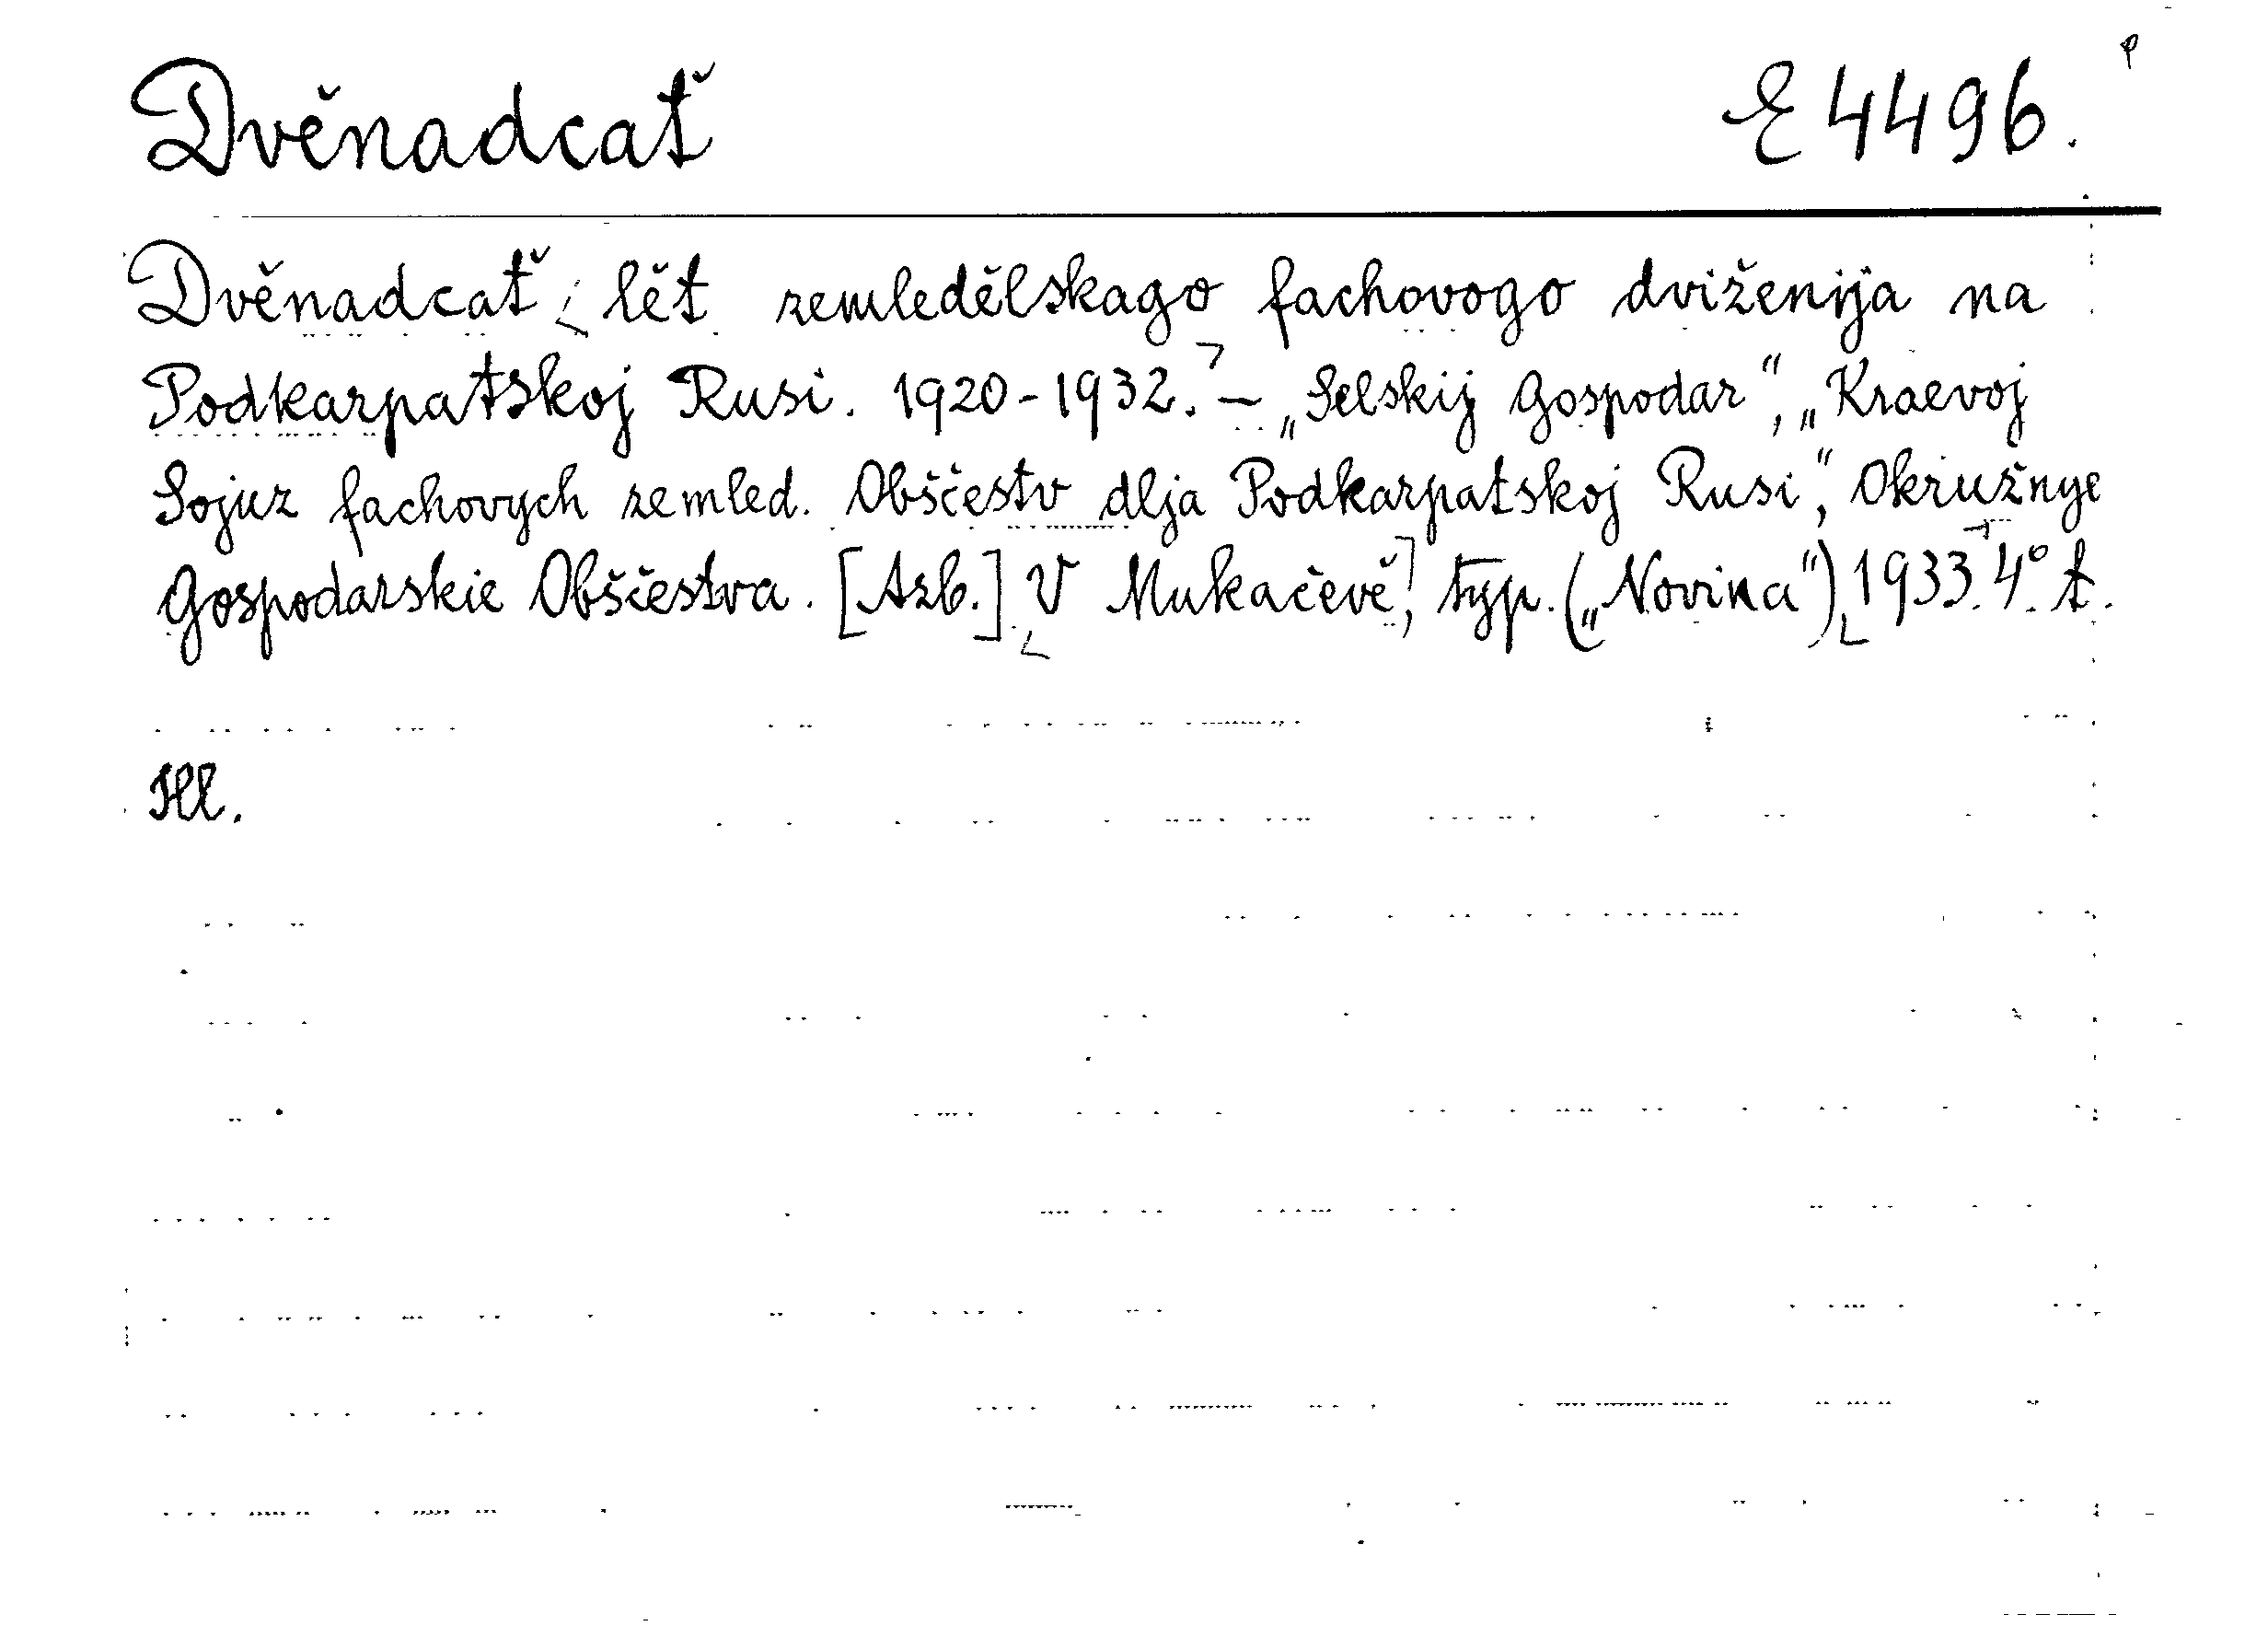 Dvěnadcať E 4496.
Dvěnadcať lět zemledělskago fachovogo dviženija na
Podkarpatskoj Rusi. 1920-1932. – „Selskij Gospodar“, „Kraevoj
Sojuz fachovych zemled. Obščestv dlja Podkarpatskoj Rusi“, Okružnye
Gospodarskie Obščestva. [Azb.] V Mukačevě, typ. („Novina“) 1933. 4°. t.
Hl.